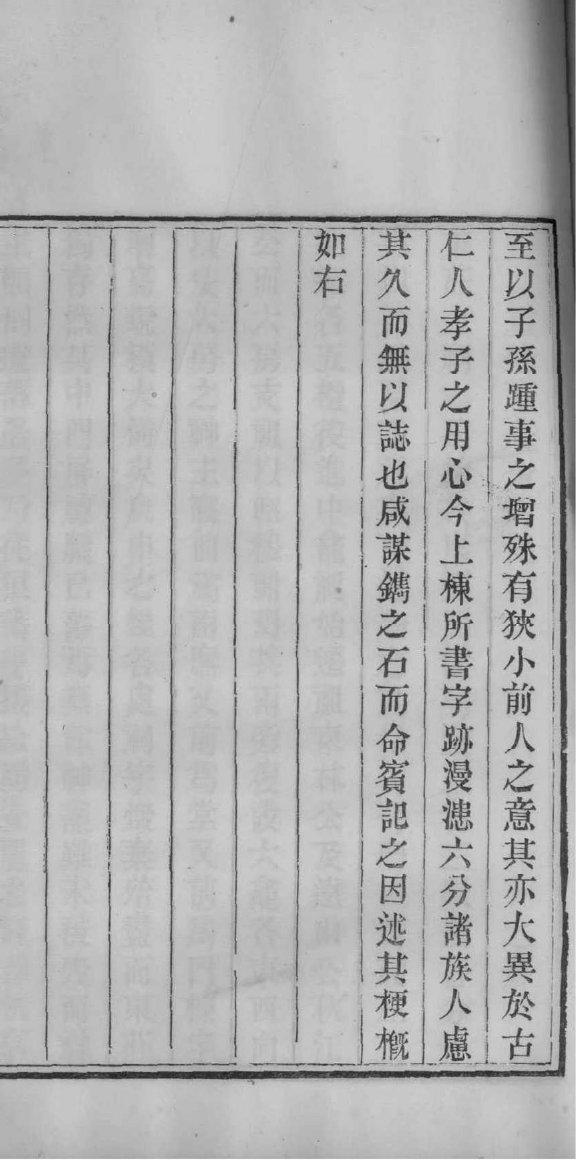 至以子孫踵事之增殊有狹小前人之意其亦大異於古
仁人孝子之用心今上棟所書字跡漫漶六分諸族人慮
其久而無以誌也咸謀鐫之石而命賓記之因述其梗概
如右